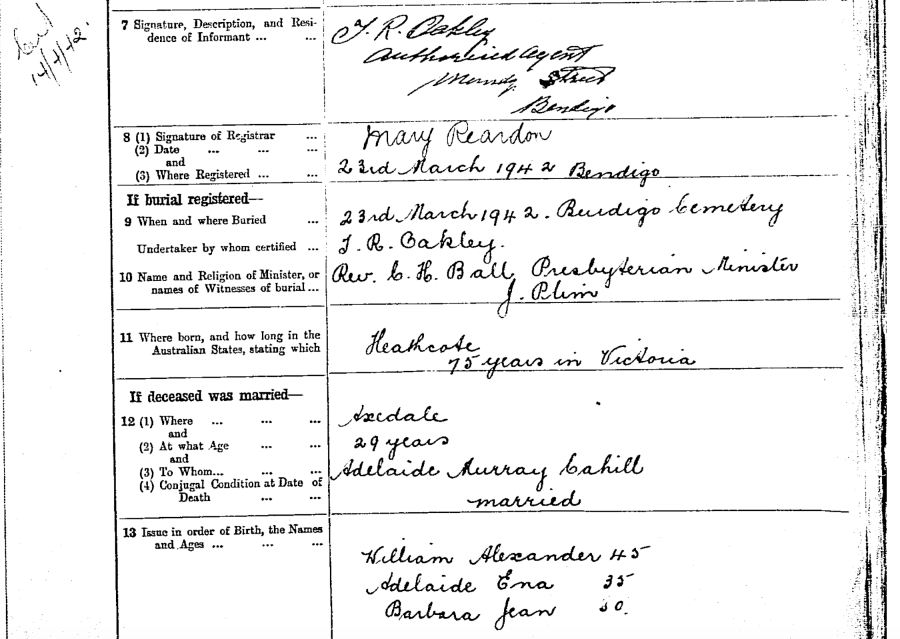 14/4/42
7 Signature, Description, and Resi-
dence of Informant ... ...
T. R. Oakley
Authorised Agent
Mundy Street
Bendigo
8 (1) Signature of Registrar ...
(2) Date ... ... ...
and
(3) Where Registered ... ...
Mary Reardon
23rd March 1942 Bendigo
If burial registered—
9 When and where Buried ...
23rd March 1942. Bendigo Cemetery
Undertaker by whom certified ...
T. R. Oakley.
10 Name and Religion of Minister, or
names of Witnesses of burial...
Rev. C. H. Ball, Presbyterian Minister
J. Plim
11 Where born, and how long in the
Australian States, stating which
Heathcote
75 years in Victoria
If deceased was married—
12 (1) Where ... ... ...
and
(2) At what Age ... ...
and
(3) To Whom... ... ...
(4) Conjugal Condition at Date of
Death ... ...
Axedale
29 years
Adelaide Murray Cahill
married
13 Issue in order of Birth, the Names
and Ages ... ... ...
William Alexander 45
Adelaide Ena 35
Barbara Jean 30.